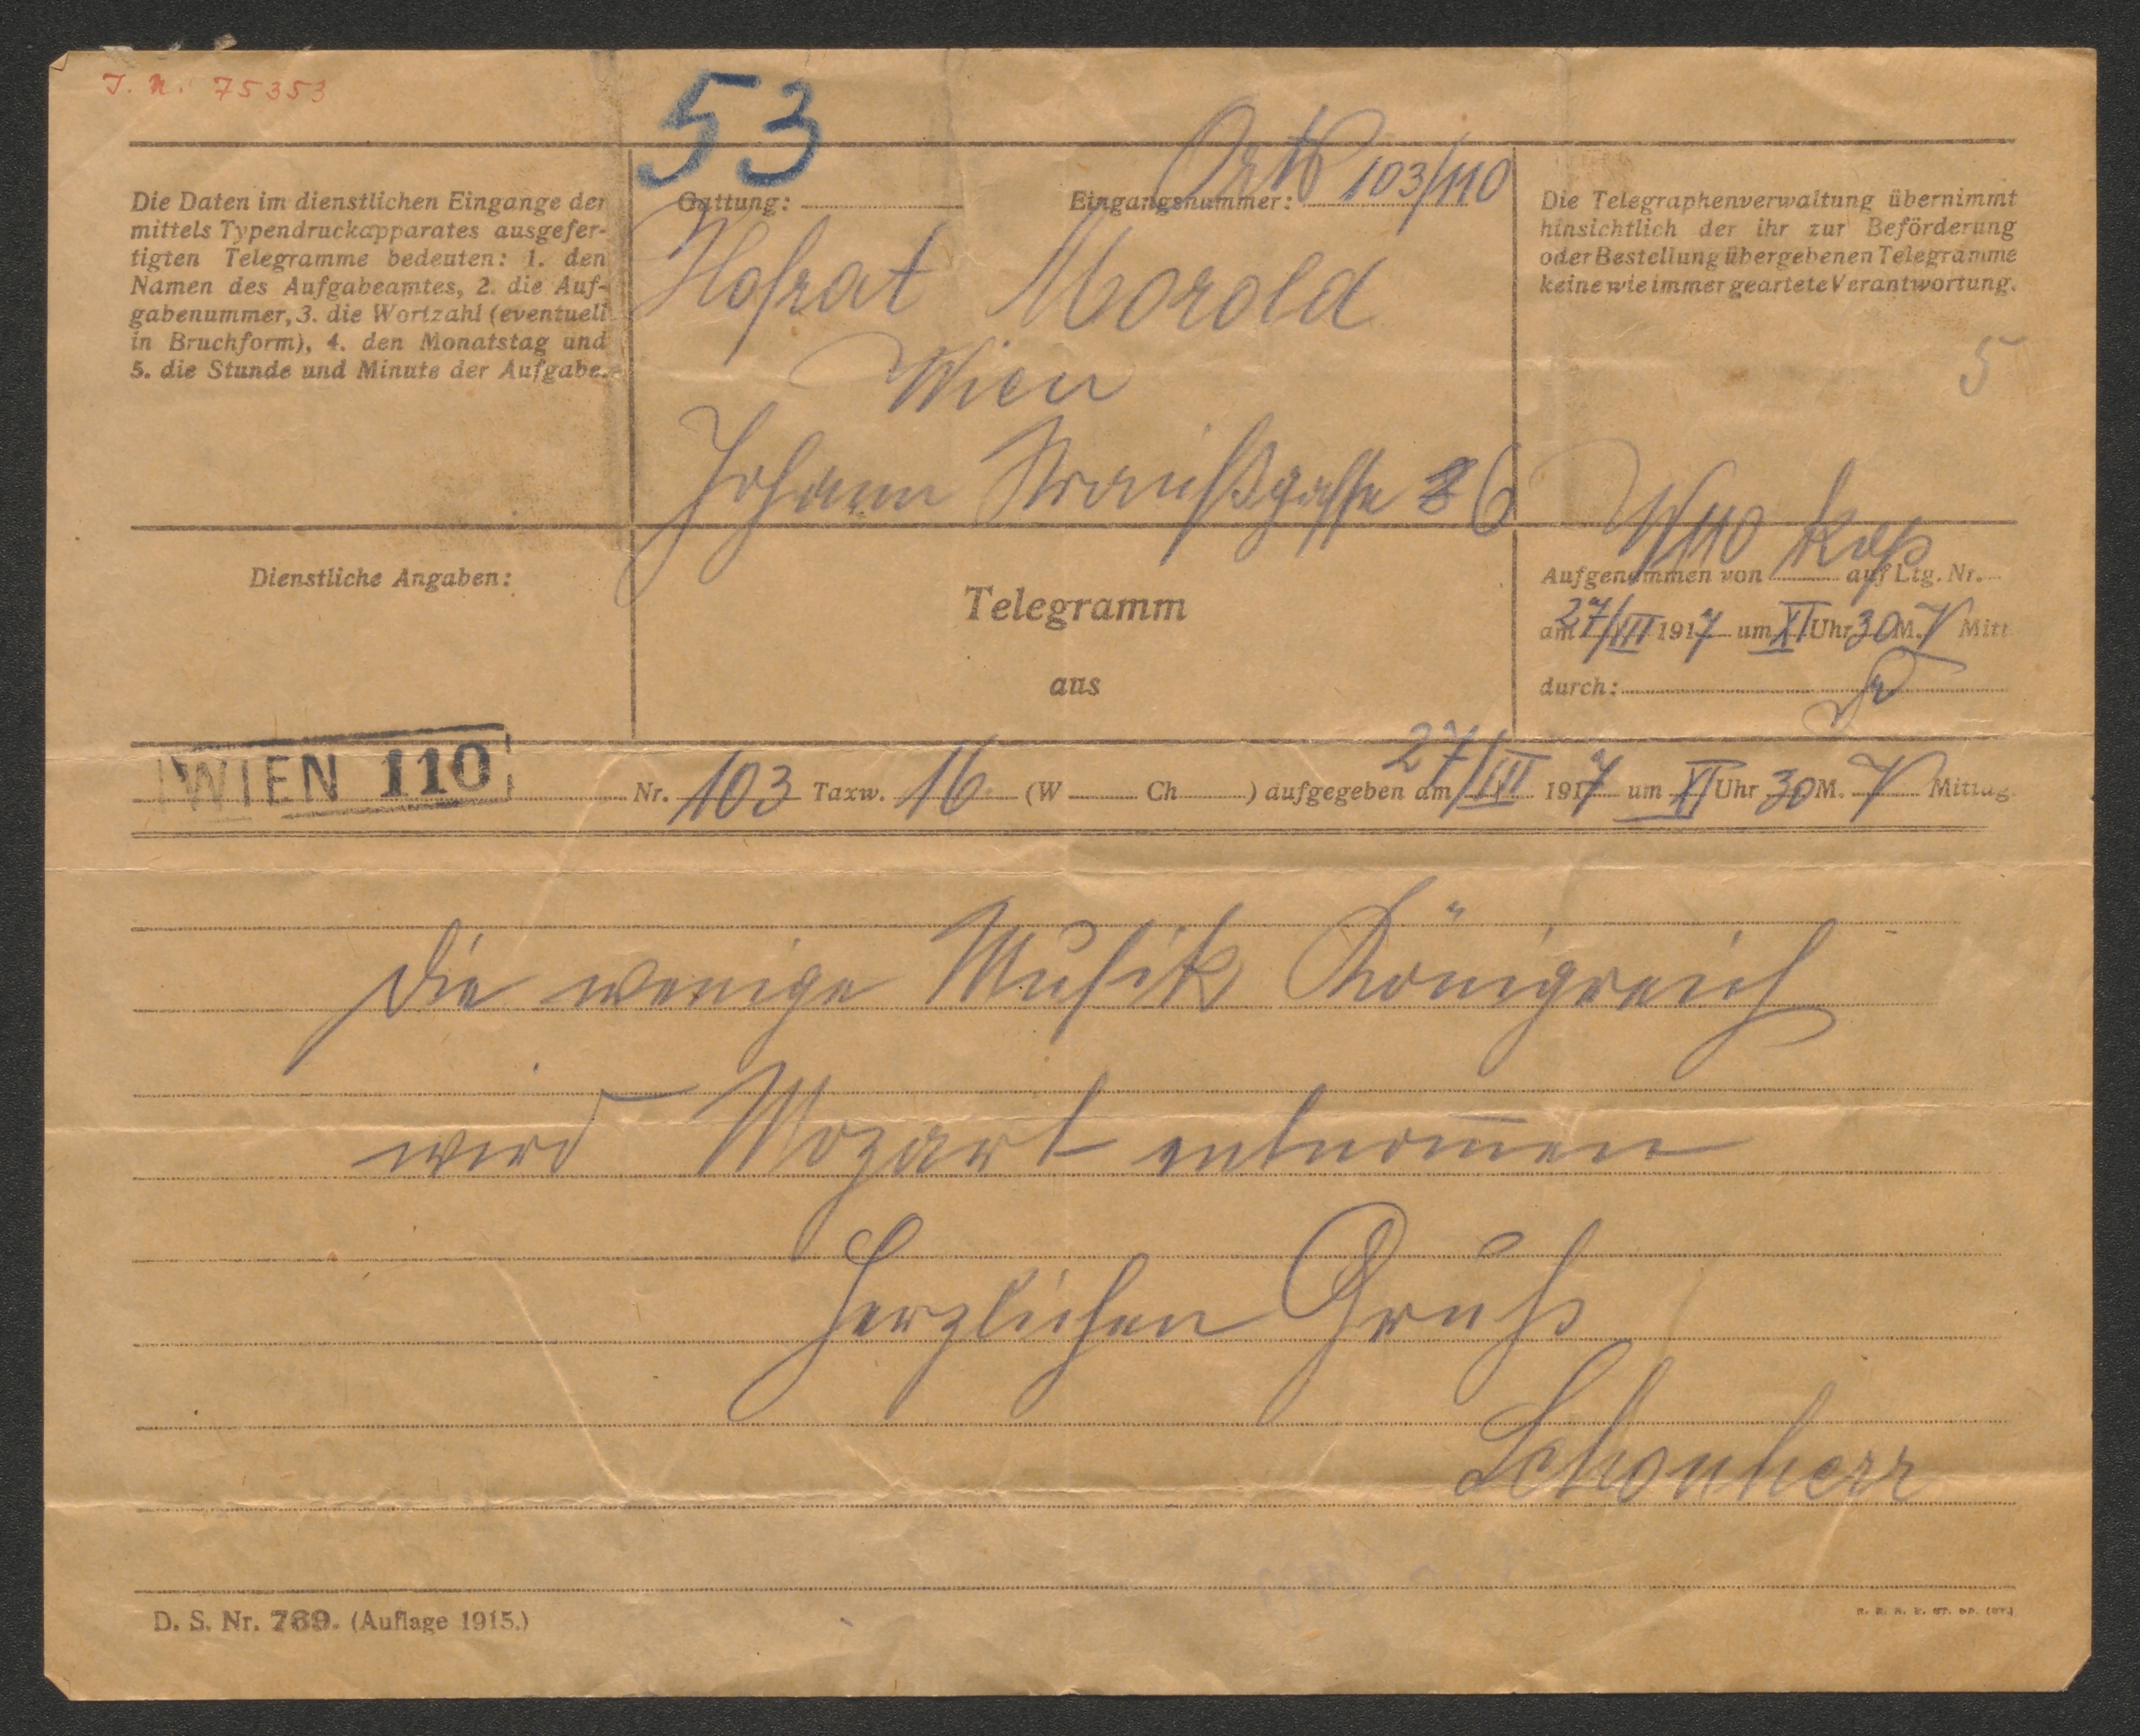 J. N. 75353
53
Die Daten im dienstlichen Eingange der
mittels Typendruckapparates ausgefer-
tigten Telegramme bedeuten: 1. den
Namen des Aufgabeamtes, 2. die Auf-
gabenummer, 3. die Wortzahl (eventuell
in Bruchform), 4. den Monatstag und
5. die Stunde und Minute der Aufgabe.
Gattung:
Eingangsnummer: 103/110
Hofrat Morold
Wien
Johann Straußgasse 36
Die Telegraphenverwaltung übernimmt
hinsichtlich der ihr zur Beförderung
oder Bestellung übergebenen Telegramme
keine wie immer geartete Verantwortung.
5
Dienstliche Angaben:
Telegramm
aus
W 110
Aufgenommen von auf Ltg. Nr.
am 27/III 1917 um XI Uhr 30 M. V Mitt
durch:
WIEN 110
Nr. 103 Taxw. 16 (W Ch ) aufgegeben am 27/III 1917 um XI Uhr 30 M. V Mittag
die wenige Musik Königreich
wird Mozart entnom̄en
Herzlichen Gruß
Schonherr
D. S. Nr. 769. (Auflage 1915.)